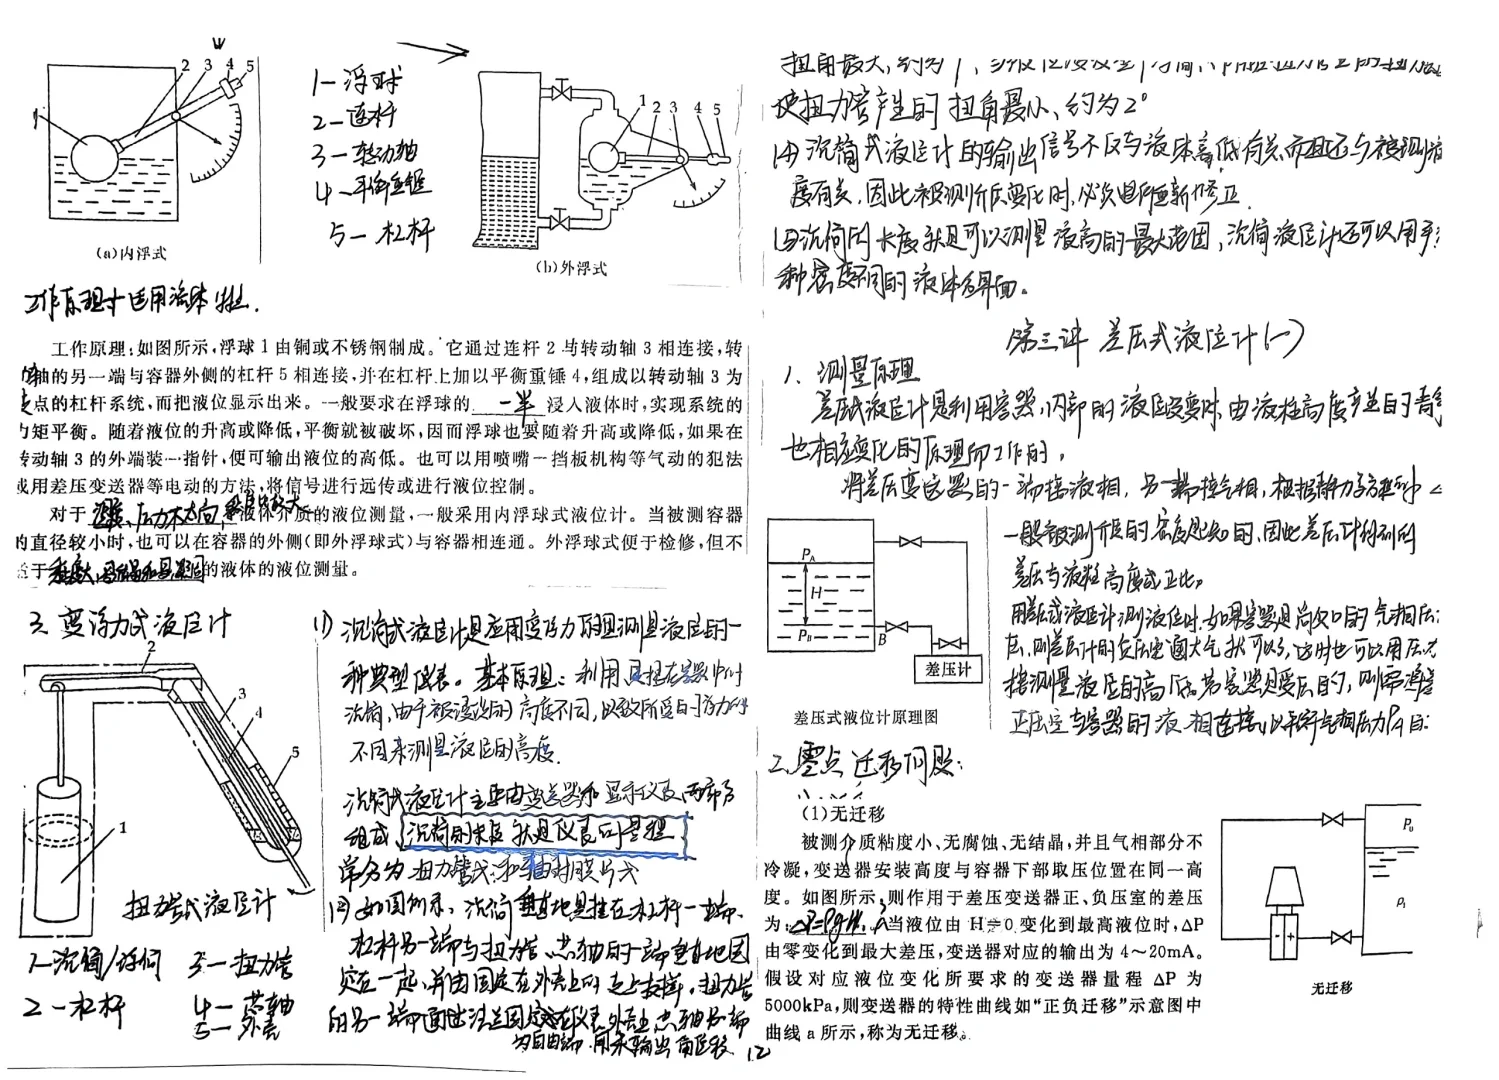 1
2
3
4
5
(a)内浮式
1—浮球
2—连杆
3—转动轴
4—平衡重锤
5—杠杆
1
2
3
4
5
(b)外浮式
工作原理+适用液体
工作原理:如图所示,浮球1由铜或不锈钢制成。它通过连杆2与转动轴3相连接,转
轴的另一端与容器外侧的杠杆5相连接,并在杠杆上加以平衡重锤4,组成以转动轴3为
支点的杠杆系统,而把液位显示出来。一般要求在浮球的 一半 浸入液体时,实现系统的
力矩平衡。随着液位的升高或降低,平衡就被破坏,因而浮球也要随着升高或降低,如果在
转动轴3的外端装一指针,便可输出液位的高低。也可以用喷嘴一挡板机构等气动的犯法
或用差压变送器等电动的方法,将信号进行远传或进行液位控制。
对于 液体介质的液位测量,一般采用内浮球式液位计。当被测容器
的直径较小时,也可以在容器的外侧(即外浮球式)与容器相连通。外浮球式便于检修,但不
的液体的液位测量。
3、变浮力式液位计
2
3
4
5
1
扭力管式液位计
1—沉筒/浮筒
3—扭力管
2—杠杆
4—芯轴
5—外壳
(1) 沉筒式液位计是应用变浮力原理测量液位的一
种典型仪表。基本原理:利用悬挂在容器中的
沉筒,由于被浸没的高度不同,以致所受的浮力
不同来测量液位的高度.
沉筒式液位计主要由变送器和显示仪表两部分
组成,沉筒的长度就是仪表的量程
常分为扭力管式和轴封膜片式
(2) 如图所示,沉筒垂直地悬挂在杠杆一端.
杠杆另一端与扭力管、芯轴的一端垂直地固
定在一起,并由固定在外壳上的支点支撑,扭力管
的另一端通过法兰固定在仪表外壳上 芯轴另一端
为自由端,用来输出角位移.
12
扭角最大,约为
使扭力管产生的扭角最小、约为2°
(4) 沉筒式液位计的输出信号不仅与液体高低有关,而且还与被测液
度有关,因此被测介质变化时,必须进行重新修正.
(5) 沉筒的长度就是可以测量液高的最大范围,沉筒液位计还可以用于
种密度不同的液体的界面。
第三讲 差压式液位计(一)
1、测量原理
差压式液位计是利用容器内部的液位改变时,由液柱高度产生的静
也相应变化的原理而工作的,
将差压变送器的一端接液相,另一端接气相,根据静力学方程
一般被测介质的密度是已知的,因此差压计得到的
差压与液柱高度成正比,
用差压式液位计测液位时,如果容器是敞口的,气相压
压,则差压计的负压室通大气就可以了,这时也可以用压力
接测量液位的高低。若容器是受压的,则需将
正压室与容器的液相连接,以平衡气相压力PA的
PA
H
PB
B
差压计
差压式液位计原理图
2.零点迁移问题:
(1)无迁移
被测介质粘度小、无腐蚀、无结晶,并且气相部分不
冷凝,变送器安装高度与容器下部取压位置在同一高
度。如图所示,则作用于差压变送器正、负压室的差压
为:△P=ρgH,当液位由 H=0 变化到最高液位时,△P
由零变化到最大差压,变送器对应的输出为 4～20mA。
假设对应液位变化所要求的变送器量程 △P 为
5000kPa,则变送器的特性曲线如“正负迁移”示意图中
曲线 a 所示,称为无迁移。
P₀
ρ₁
- +
无迁移